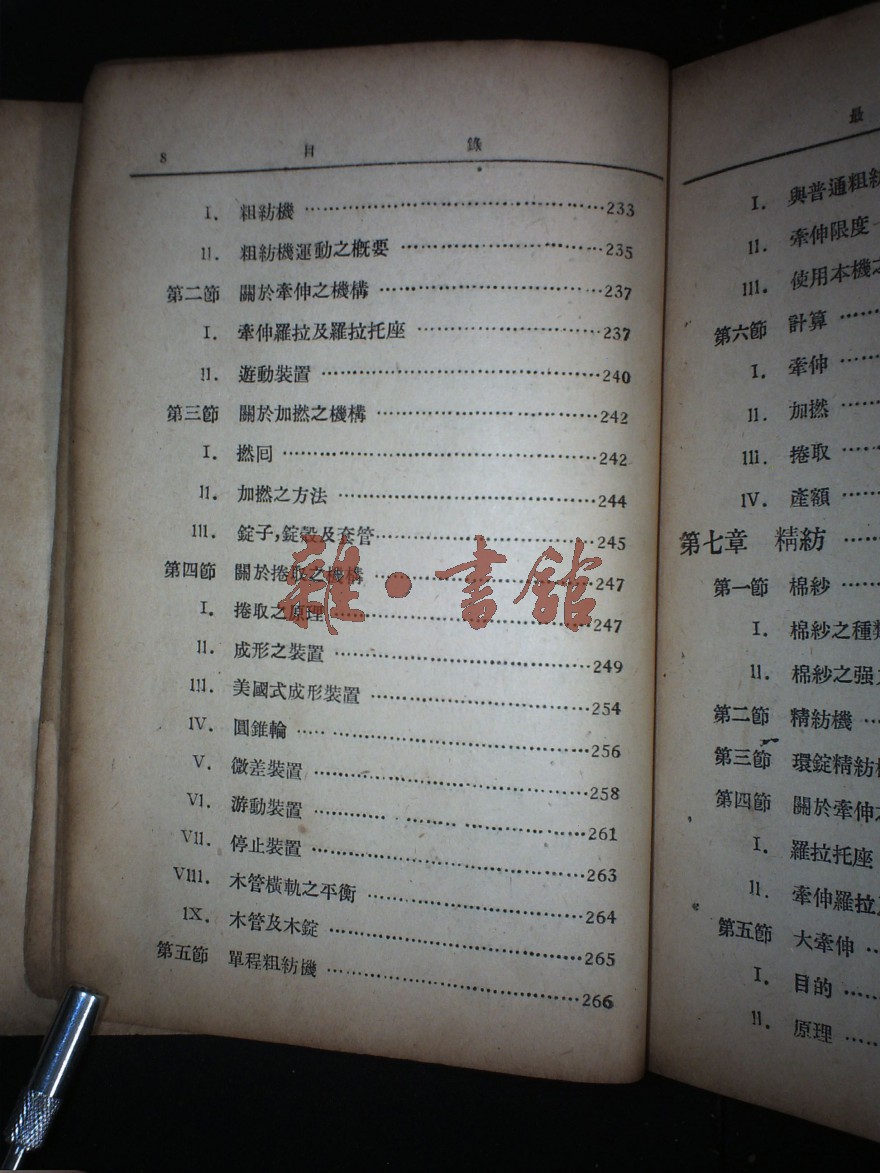 8 目 錄
I. 粗紡機 233
II. 粗紡機運動之概要 235
第二節 關於牽伸之機構 237
I. 牽伸羅拉及羅拉托座 237
II. 遊動裝置 240
第三節 關於加撚之機構 242
I. 撚回 242
II. 加撚之方法 244
III. 錠子,錠殼及套管 245
第四節 關於捲取之機構 247
I. 捲取之原理 247
II. 成形之裝置 249
III. 美國式成形裝置 254
IV. 圓錐輪 256
V. 微差裝置 258
VI. 游動裝置 261
VII. 停止裝置 263
VIII. 木管橫軌之平衡 264
IX. 木管及木錠 265
第五節 單程粗紡機 266
雜·書館
最
I. 與普通粗紡
II. 牽伸限度
III. 使用本機之
第六節 計算
I. 牽伸
II. 加撚
III. 捲取
IV. 產額
第七章 精紡
第一節 棉紗
I. 棉紗之種類
II. 棉紗之强力
第二節 精紡機
第三節 環錠精紡機
第四節 關於牽伸之
I. 羅拉托座
II. 牽伸羅拉及
第五節 大牽伸
I. 目的
II. 原理